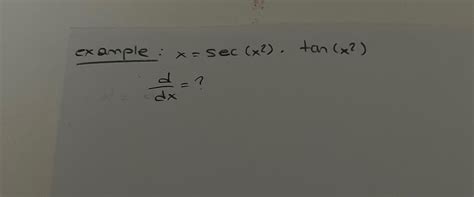 example: x = sec(x²) · tan(x²)
d/dx = ?